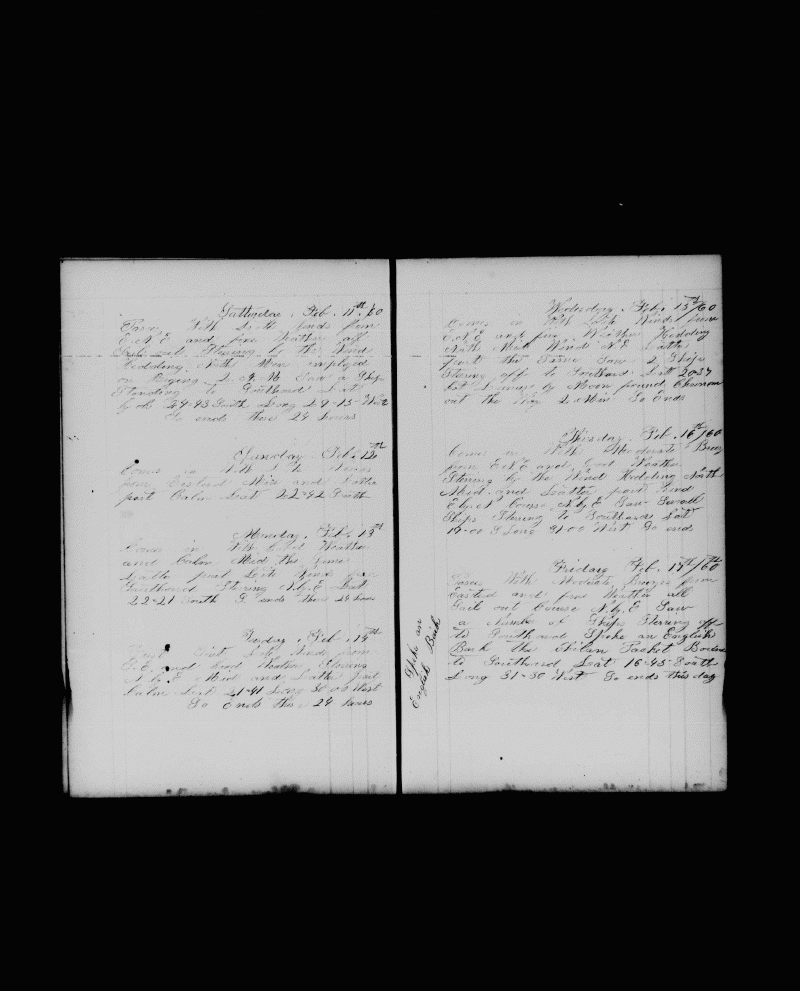 Satturday . Feb . 11th /60
with Light winds from
E.N.E and fine Weather all
Sail out Stering by the Wind
Hedding North Men employed
on Riging Saw a Ship
Standing Southard Lat
by ob 24-43 South Long 29-15 West
So ends these 24 hours
Sunday . Feb . 12th
Comes in With
from Eastard Mid and Latter
part Calm Lat 22-42 South
Monday . Feb . 13th
Comes in With Good Weather
and Calm Mid the Same
Latter part Lite Wind from
Southard Stering N.b.E Lat
22-21 South So ends these 24 hours
Tusday . Feb . 14th
First Part Lite Wind from
S.E. and Good Weather Stering
N.b.E Mid and Latter Part
Calm Lat 21-41 Long 30 00 West
So Ends these 24 hours
Wedesday . Feb . 15th /60
Comes in With Lite Winds from
E.N.E and fine Weather Hedding
North Mid Winds N.E Latter
part the Same Saw 2 Ships
Stering off to Southard Latt 20-37
by Moon found Chronom
out the Way 2 Min So Ends
Thirsday . Feb . 16th /60
Comes in With Moderate Breeze
from E.N.E and Good Weather
Stering by the Wind Hedding North
Mid and Latter part Wind
E.b.N Course N.b.E Saw Sevall
Ships Stering to Southard Lat
19-00 S Long 31-00 West So ends
Friday Feb . 17th /60
Comes With Moderate Breeze from
Easted and fine Weather all
Sail out Course N.b.E Saw
a number of Ships Stering off
to Southard Spoke an English
Bark the Chilan Packet Bound
to Southward Lat 16-45 South
Long 31-30 West So ends this day
Spoke an
English Bark